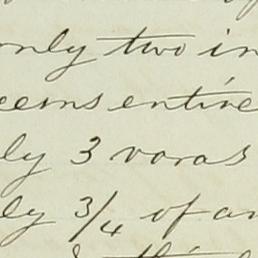 only two in
eems entire
ly 3 varas
ly 3/4 of an